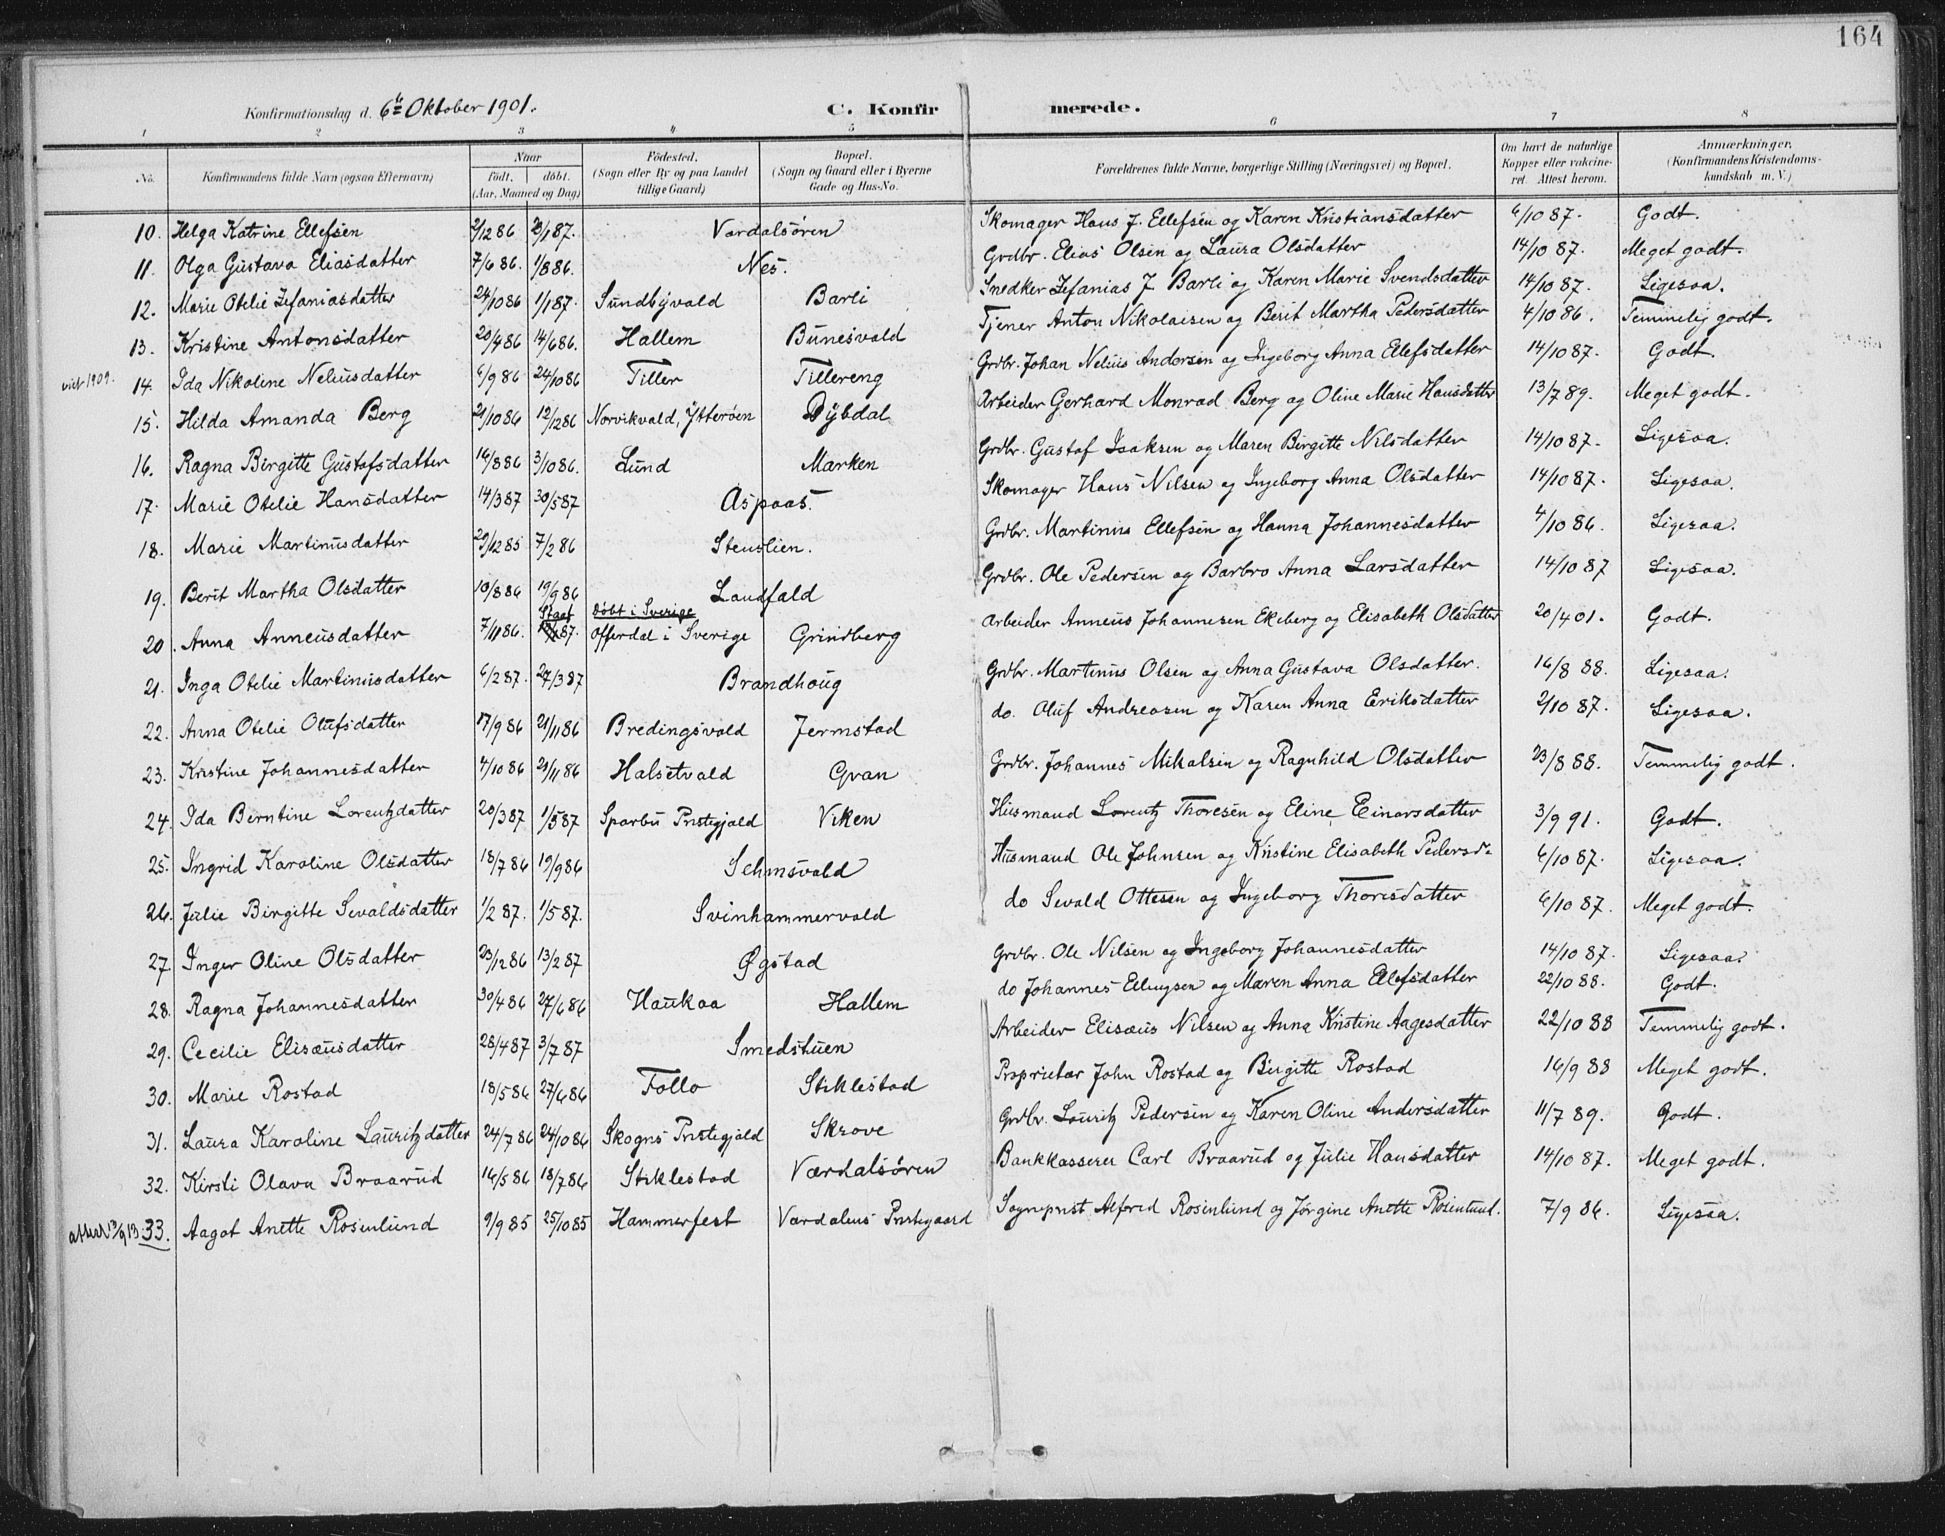 164
Konfirmationsdag d. 6te Oktober 1901. C. Konfirmerede.
1 2 3 4 5 6 7 8
No. Konfirmandens fulde Navn (ogsaa Efternavn) Naar født. døbt. (Aar, Maaned og Dag) Fødested. (Sogn eller By og paa Landet tillige Gaard) Bopæl. (Sogn og Gaard eller i Byerne Gade og Hus-No. Forældrenes fulde Navne, borgerlige Stilling (Næringsvei) og Bopæl. Om havt de naturlige Kopper eller vakcineret. Attest herom. Anmærkninger. (Konfirmandens Kristendomskundskab m. V.)
10. Helga Katrine Ellefsen 2/12 86 23/1 87. Værdalsøren Skomager Hans J. Ellefsen og Karen Kristiansdatter 6/10 87. Godt.
11. Olga Gustava Eliasdatter 7/6 86. 1/8 86. Nes. Grdbr. Elias Olsen og Laura Olsdatter 14/10 87. Meget godt.
12. Marie Otelie Zefaniasdatter 24/10 86 1/1 87. Sundbyvald Barli Snedker Zefanias J Barli og Karen Marie Svendsdatter 14/10 87. Ligesaa.
13. Kristine Antonsdatter 20/4 86 14/6 86. Hallem Bunesvald Tjener Anton Nikolaisen og Berit Martha Pedersdatter 4/10 86. Temmelig godt.
14. Ida Nikoline Neliusdatter 6/9 86 24/10 86 Tiller Tillereng Grdbr. Johan Nelius Andersen og Ingeborg Anna Ellefsdatter 14/10 87. Godt.
15. Hilda Amanda Berg 21/10 86 12/12 86 Norvikvald, Ytterøen Dybdal Arbeider Gerhard Monrad Berg og Oline Marie Hansdatter 13/7 89. Meget godt.
16. Ragna Birgitte Gustafsdatter 16/8 86 3/10 86. Lund Marken Grdbr. Gustaf Isaksen og Maren Birgitte Nilsdatter 14/10 87. Ligesaa.
17. Marie Otelie Hansdatter 14/3 87 30/5 87 Aspaas. Skomager Hans Nilsen og Ingeborg Anna Olsdatter 14/10 87. Ligesaa.
18. Marie Martinusdatter 29/12 85 7/2 86 Stenslien. Grdbr. Martinus Ellefsen og Hanna Johannesdatter 4/10 86. Ligesaa.
19. Berit Martha Olsdatter 10/8 86 19/9 86 Landfald Grdbr. Ole Pedersen og Barbro Anna Larsdatter 14/10 87 Ligesaa.
døbt i Sverige
20. Anna Anneusdatter 7/11 86. Offerdal i Sverige Grindberg Arbeider Anneus Johannesen Ekeberg og Elisabeth Olsdatter 20/4 01. Godt.
21. Inga Otelie Martinusdatter 6/2 87. 27/3 87 Brandhoug Grdbr. Martinus Olsen og Anna Gustava Olsdatter. 16/8 88. Ligesaa.
22. Anna Otelie Olufsdatter 17/9 86 21/11 86 Bredingsvald Jermstad do. Oluf Andreasen og Karen Anna Eriksdatter 2/10 87. Ligesaa.
23. Kristine Johannesdatter 4/10 86 21/11 86 Halsetvald Gran Grdbr. Johannes Mikalsen og Ragnhild Olsdatter 23/8 88. Temmelig godt.
24. Ida Berntine Lorentzdatter 20/3 87 1/5 87 Sparbu Prstegjæld Viken Husmand Lorentz Thoresen og Eline Einarsdatter 3/9 91. Godt.
25. Ingrid Karoline Olsdatter 18/7 86 19/9 86 Sehmsvald Husmand Ole Johnsen og Kristine Elisabeth Pedersd. 6/10 87. Ligesaa.
26. Julie Birgitte Sevaldsdatter 1/2 87. 1/5 87. Svinhammervald do Sevald Ottesen og Ingeborg Thoresdatter 6/10 87. Meget godt.
27. Inger Oline Olsdatter 23/12 86 13/2 87 Øgstad Grdbr. Ole Nilsen og Ingeborg Johannesdatter 14/10 87. Ligesaa.
28. Ragna Johannesdatter 30/4 86 27/6 86 Haukaa Hallem do Johannes Ellingsen og Maren Anna Ellefsdatter 22/10 88. Godt.
29. Cecilie Elisæusdatter 28/4 87 3/7 87 Smedshuen Arbeider Elisæus Nilsen og Anna Kristine Aagesdatter 22/10 88 Temmelig godt.
30. Marie Rostad 18/5 86 27/6 86 Follo Stiklestad Proprietær John Rostad og Birgitte Rostad 16/9 88 Meget godt.
31. Laura Karoline Lauritzdatter 24/7 86 24/10 86 Skogns Prstegjæld Skrove Grdbr. Lauritz Pedersen og Karen Oline Andersdatter 11/7 89. Godt.
32. Kirsti Olava Braarud 16/5 86 18/7 86 Stiklestad Værdalsøren Bankkasserer Carl Braarud og Julie Hansdatter 14/10 87. Meget godt.
33. Aagot Anette Rosenlund 9/9 85 25/10 85 Hammerfest Værdalens Prstegaard Sogneprst Alfred Rosenlund og Jørgine Anette Rosenlund. 7/9 86. Ligesaa.